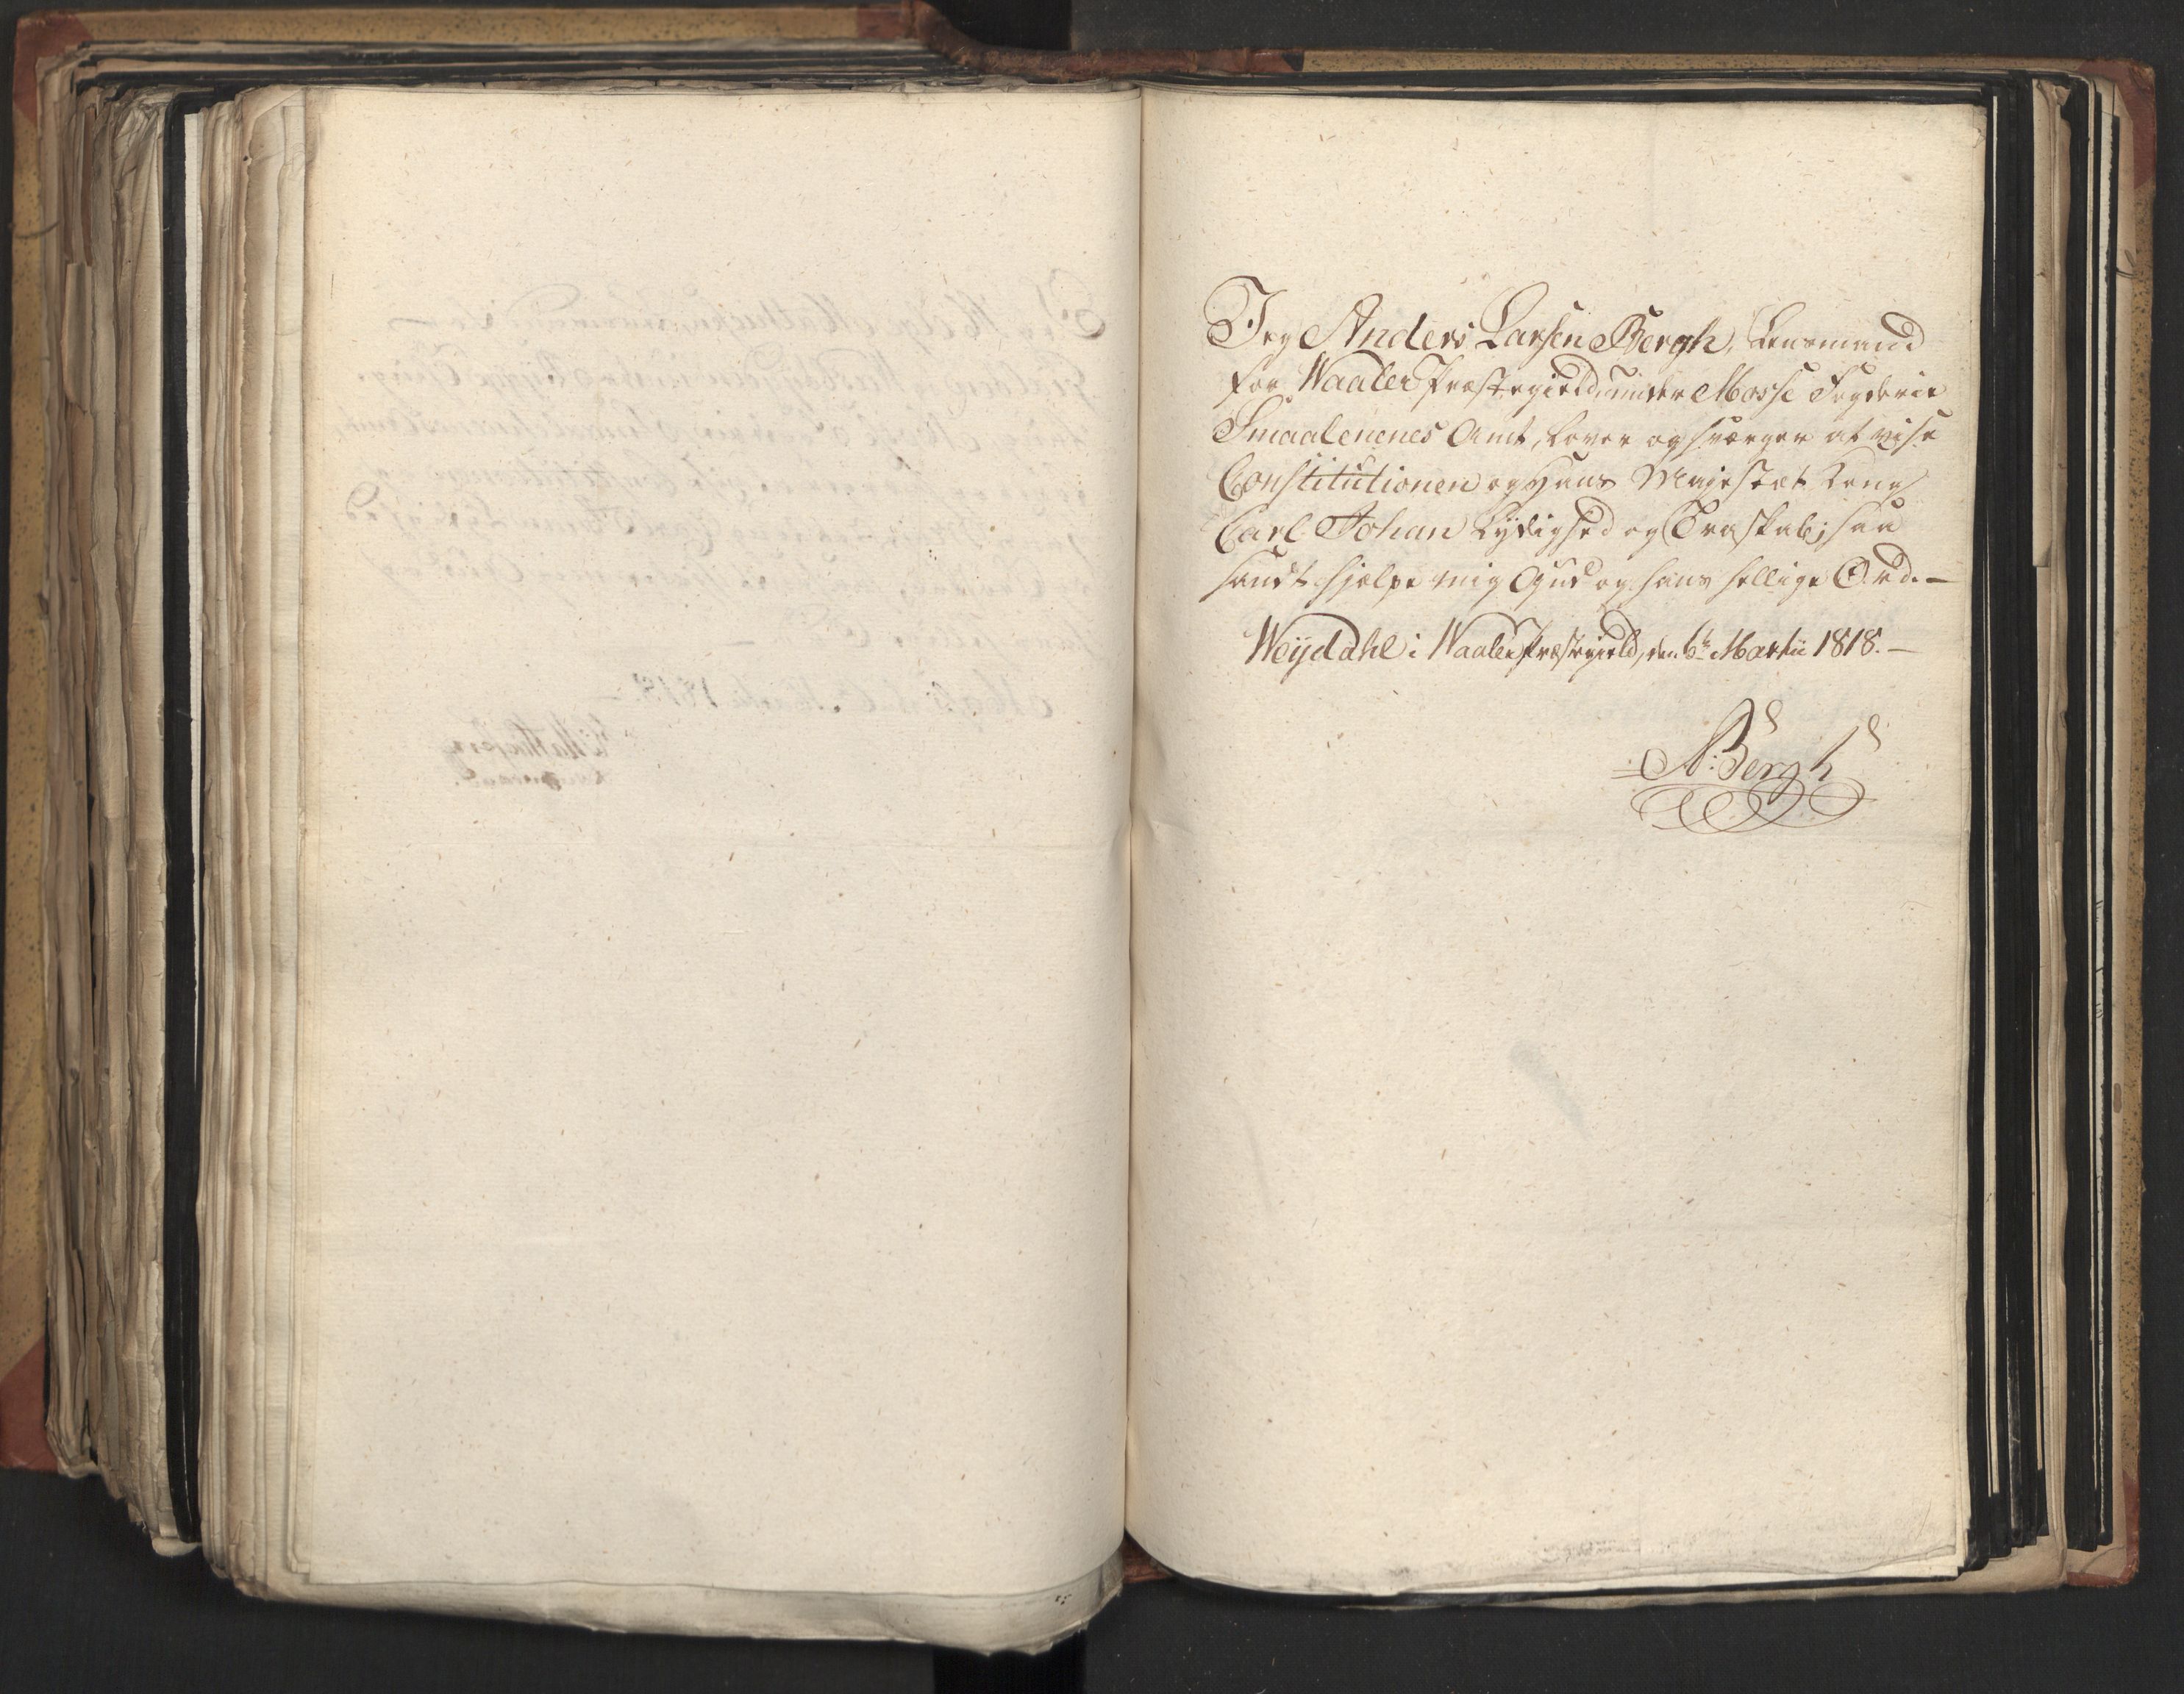 Jeg Anders Larsen Bergh, Lensmand
for Waaler Præstegield, under Mosse Fogderie
Smaalenenes Amt, lover og sværger at vise
Constitutionen og Hans Majestæt Kong
Carl Johan Lydighed og Troskab; saa
sandt hjelpe mig Gud og hans hellige Ord. —
Weydahl i Waaler Præstegield, den 6te Martii 1818. —
A: Bergh